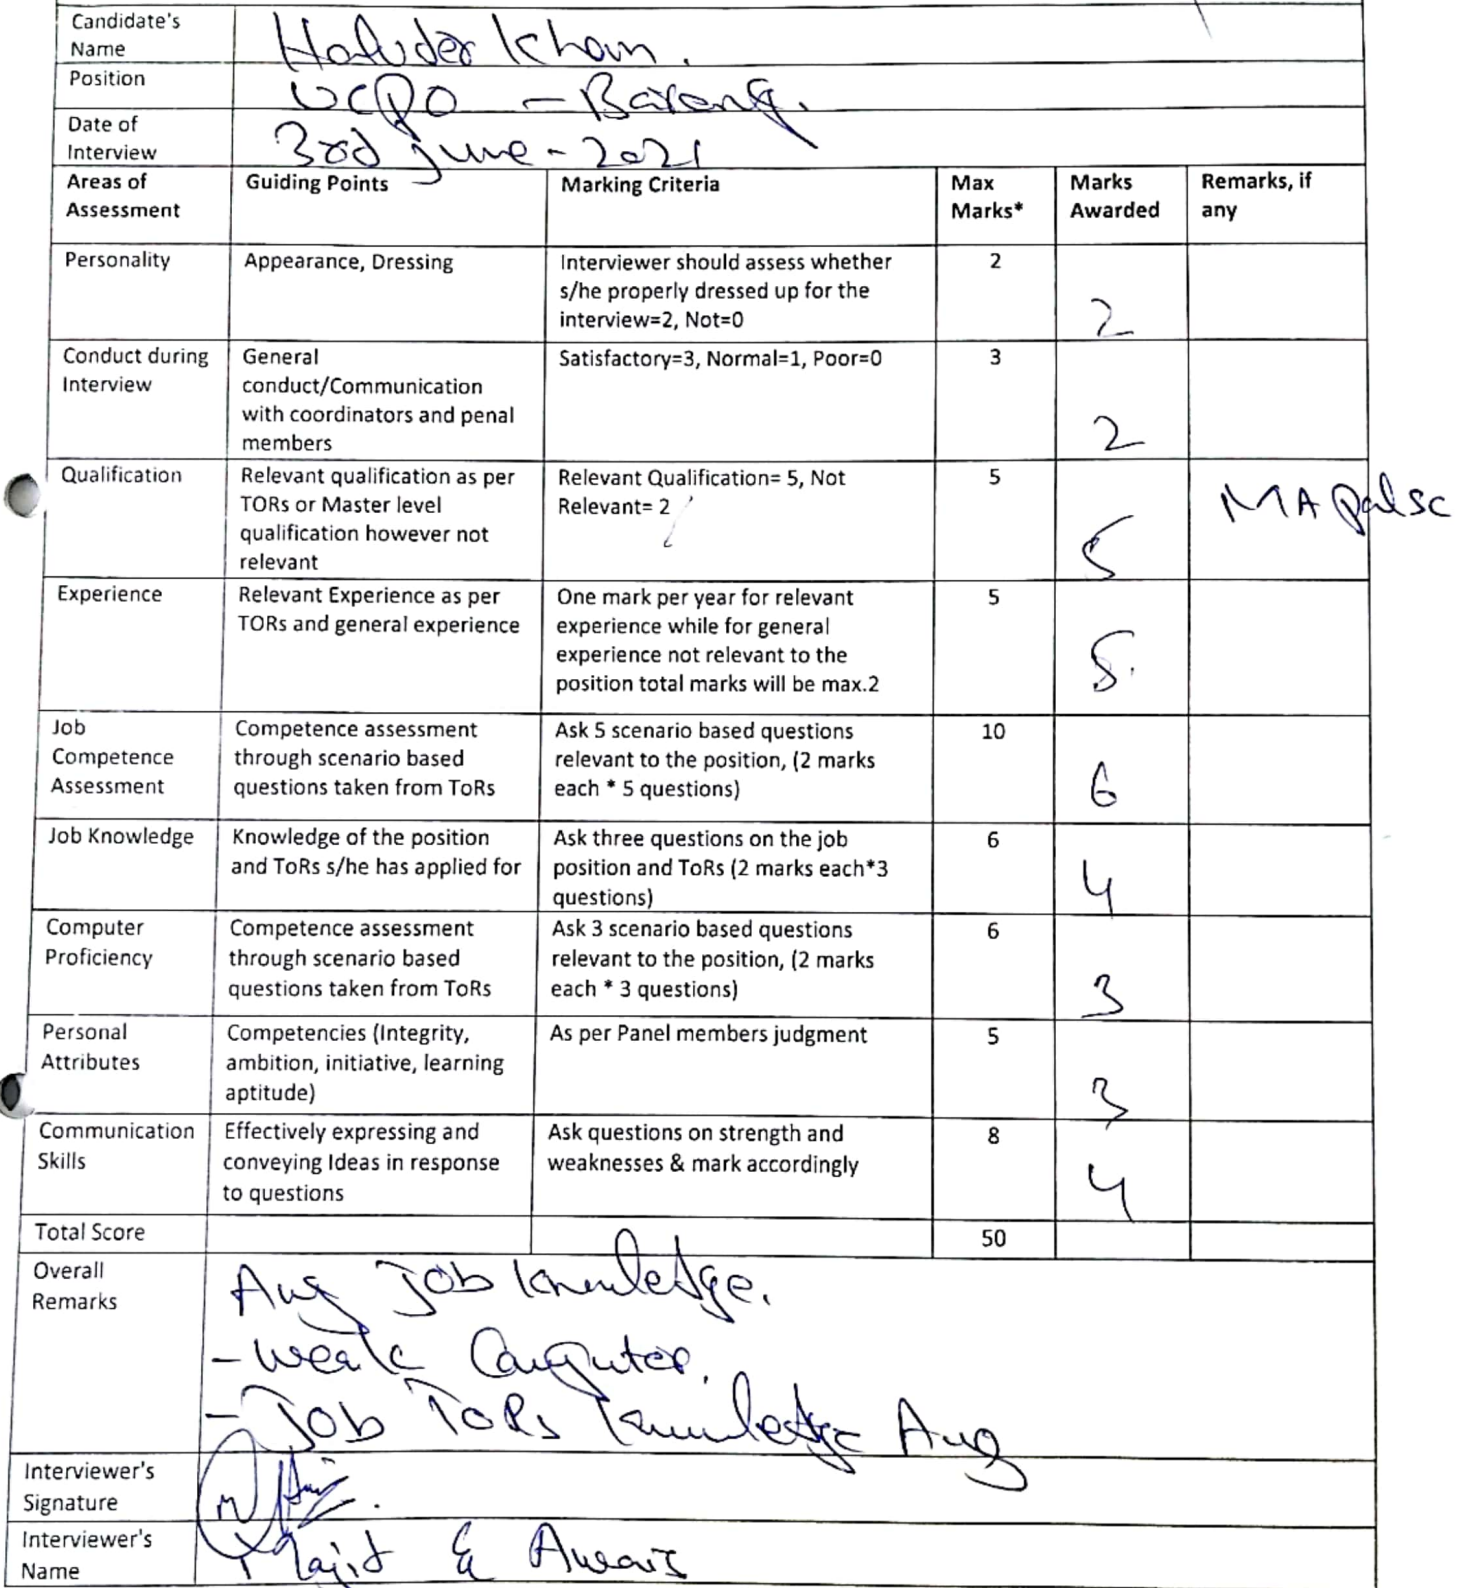 Candidate's
Name
Khan.
Position
UCPO – Barang.
Date of
Interview
3rd June - 2021
Areas of
Assessment
Guiding Points
Marking Criteria
Max
Marks*
Marks
Awarded
Remarks, if
any
Personality
Appearance, Dressing
Interviewer should assess whether
s/he properly dressed up for the
interview=2, Not=0
2
2
Conduct during
Interview
General
conduct/Communication
with coordinators and penal
members
Satisfactory=3, Normal=1, Poor=0
3
2
Qualification
Relevant qualification as per
TORs or Master level
qualification however not
relevant
Relevant Qualification= 5, Not
Relevant= 2
5
5
MA polsc
Experience
Relevant Experience as per
TORs and general experience
One mark per year for relevant
experience while for general
experience not relevant to the
position total marks will be max.2
5
5
Job
Competence
Assessment
Competence assessment
through scenario based
questions taken from ToRs
Ask 5 scenario based questions
relevant to the position, (2 marks
each * 5 questions)
10
6
Job Knowledge
Knowledge of the position
and ToRs s/he has applied for
Ask three questions on the job
position and ToRs (2 marks each*3
questions)
6
4
Computer
Proficiency
Competence assessment
through scenario based
questions taken from ToRs
Ask 3 scenario based questions
relevant to the position, (2 marks
each * 3 questions)
6
3
Personal
Attributes
Competencies (Integrity,
ambition, initiative, learning
aptitude)
As per Panel members judgment
5
3
Communication
Skills
Effectively expressing and
conveying Ideas in response
to questions
Ask questions on strength and
weaknesses & mark accordingly
8
4
Total Score
50
Overall
Remarks
Avg Job knowledge.
- weak Computer.
- Job ToRs knowledge Avg
Interviewer's
Signature
Interviewer's
Name
Majid & Awais